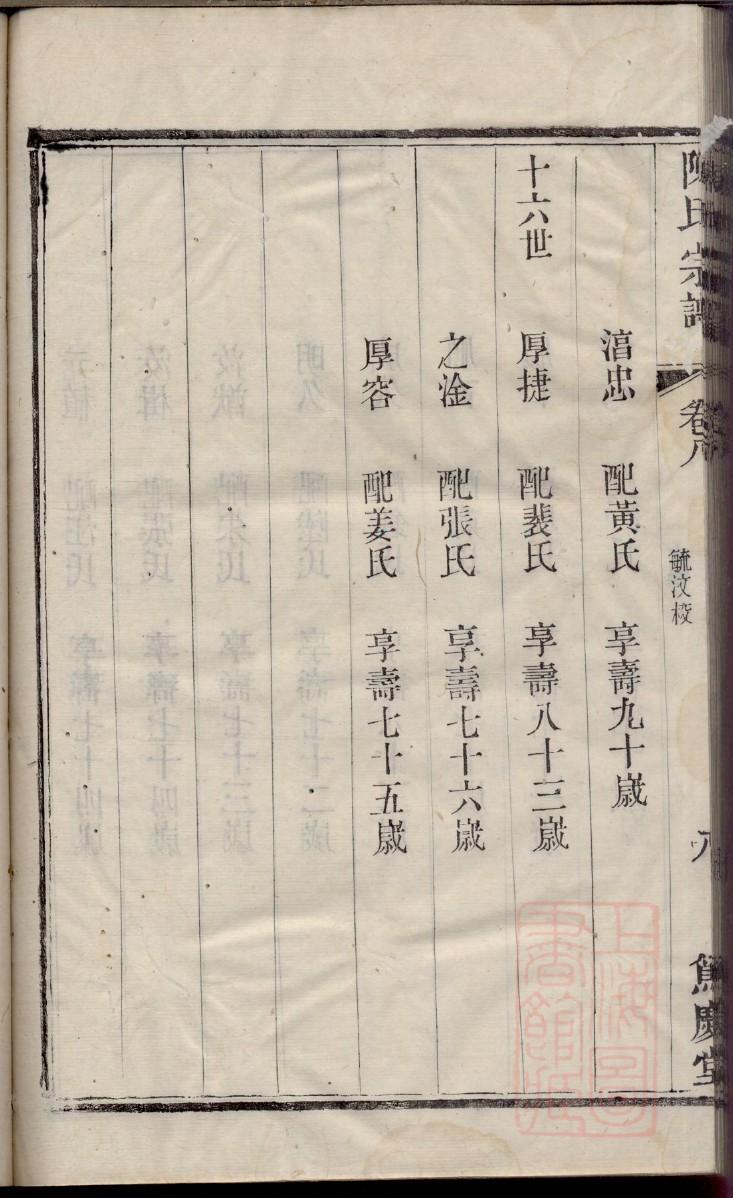 陳氏宗譜
卷八
毓汶校
八
篤慶堂
湻忠 配黃氏 享壽九十歲
十六世
厚捷 配裴氏 享壽八十三歲
之淦 配張氏 享壽七十六歲
厚容 配姜氏 享壽七十五歲
上海圖書館藏